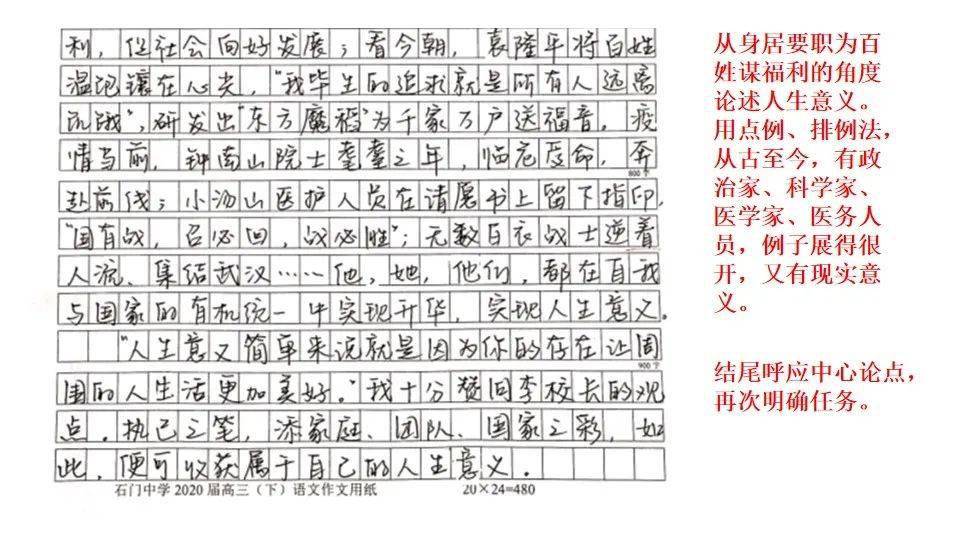 利，促社会向好发展；看今朝，袁隆平将百姓
温饱镶在心尖，"我毕生的追求就是所有人远离
饥饿"，研发出"东方魔稻"为千家万户送福音，疫
情当前，钟南山院士耄耋之年，临危受命，奔
800 字
赴前线；小汤山医护人员在请愿书上留下指印，
"国有战，召必回，战必胜"；无数白衣战士逆着
人流，集结武汉……他，她，他们，都在自我
与国家的有机统一中实现升华，实现人生意义。
"人生意义简单来说就是因为你的存在让周
900 字
围的人生活更加美好。"我十分赞同李校长的观
点。执己之笔，添家庭、团队、国家之彩，如
此，便可收获属于自己的人生意义。
石门中学 2020 届高三（下）语文作文用纸 20×24=480
从身居要职为百
姓谋福利的角度
论述人生意义。
用点例、排例法，
从古至今，有政
治家、科学家、
医学家、医务人
员，例子展得很
开，又有现实意
义。
结尾呼应中心论点，
再次明确任务。